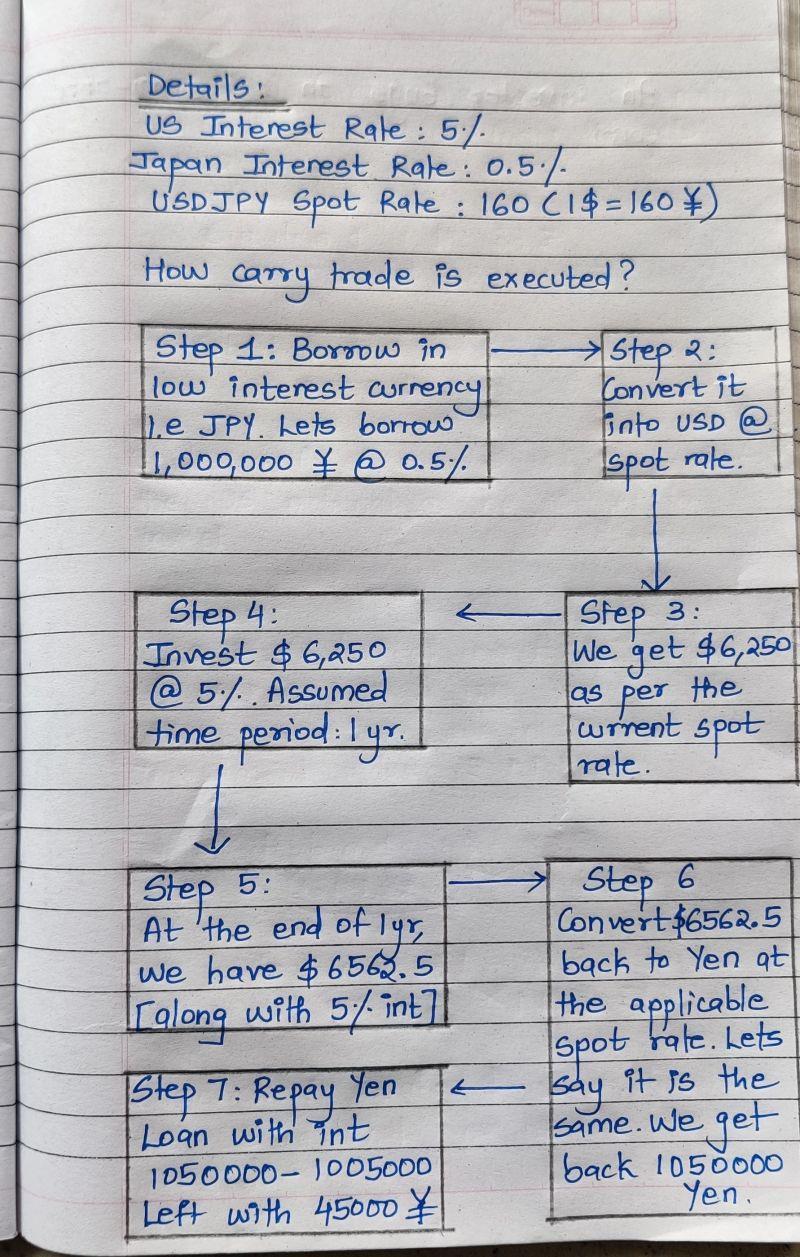 Details:
US Interest Rate: 5%.
Japan Interest Rate: 0.5%.
USDJPY Spot Rate: 160 (1$ = 160 ¥)
How carry trade is executed?
Step 1: Borrow in
low interest currency
i.e JPY. Lets borrow
1,000,000 ¥ @ 0.5%
Step 2:
Convert it
into USD @
spot rate.
Step 3:
We get $6,250
as per the
current spot
rate.
Step 4:
Invest $ 6,250
@ 5%. Assumed
time period: 1 yr.
Step 5:
At the end of 1yr,
we have $6562.5
[along with 5% int]
Step 6
Convert $6562.5
back to Yen at
the applicable
spot rate. Lets
say it is the
same. We get
back 1050000
Yen.
Step 7: Repay Yen
Loan with int
1050000 - 1005000
Left with 45000 ¥